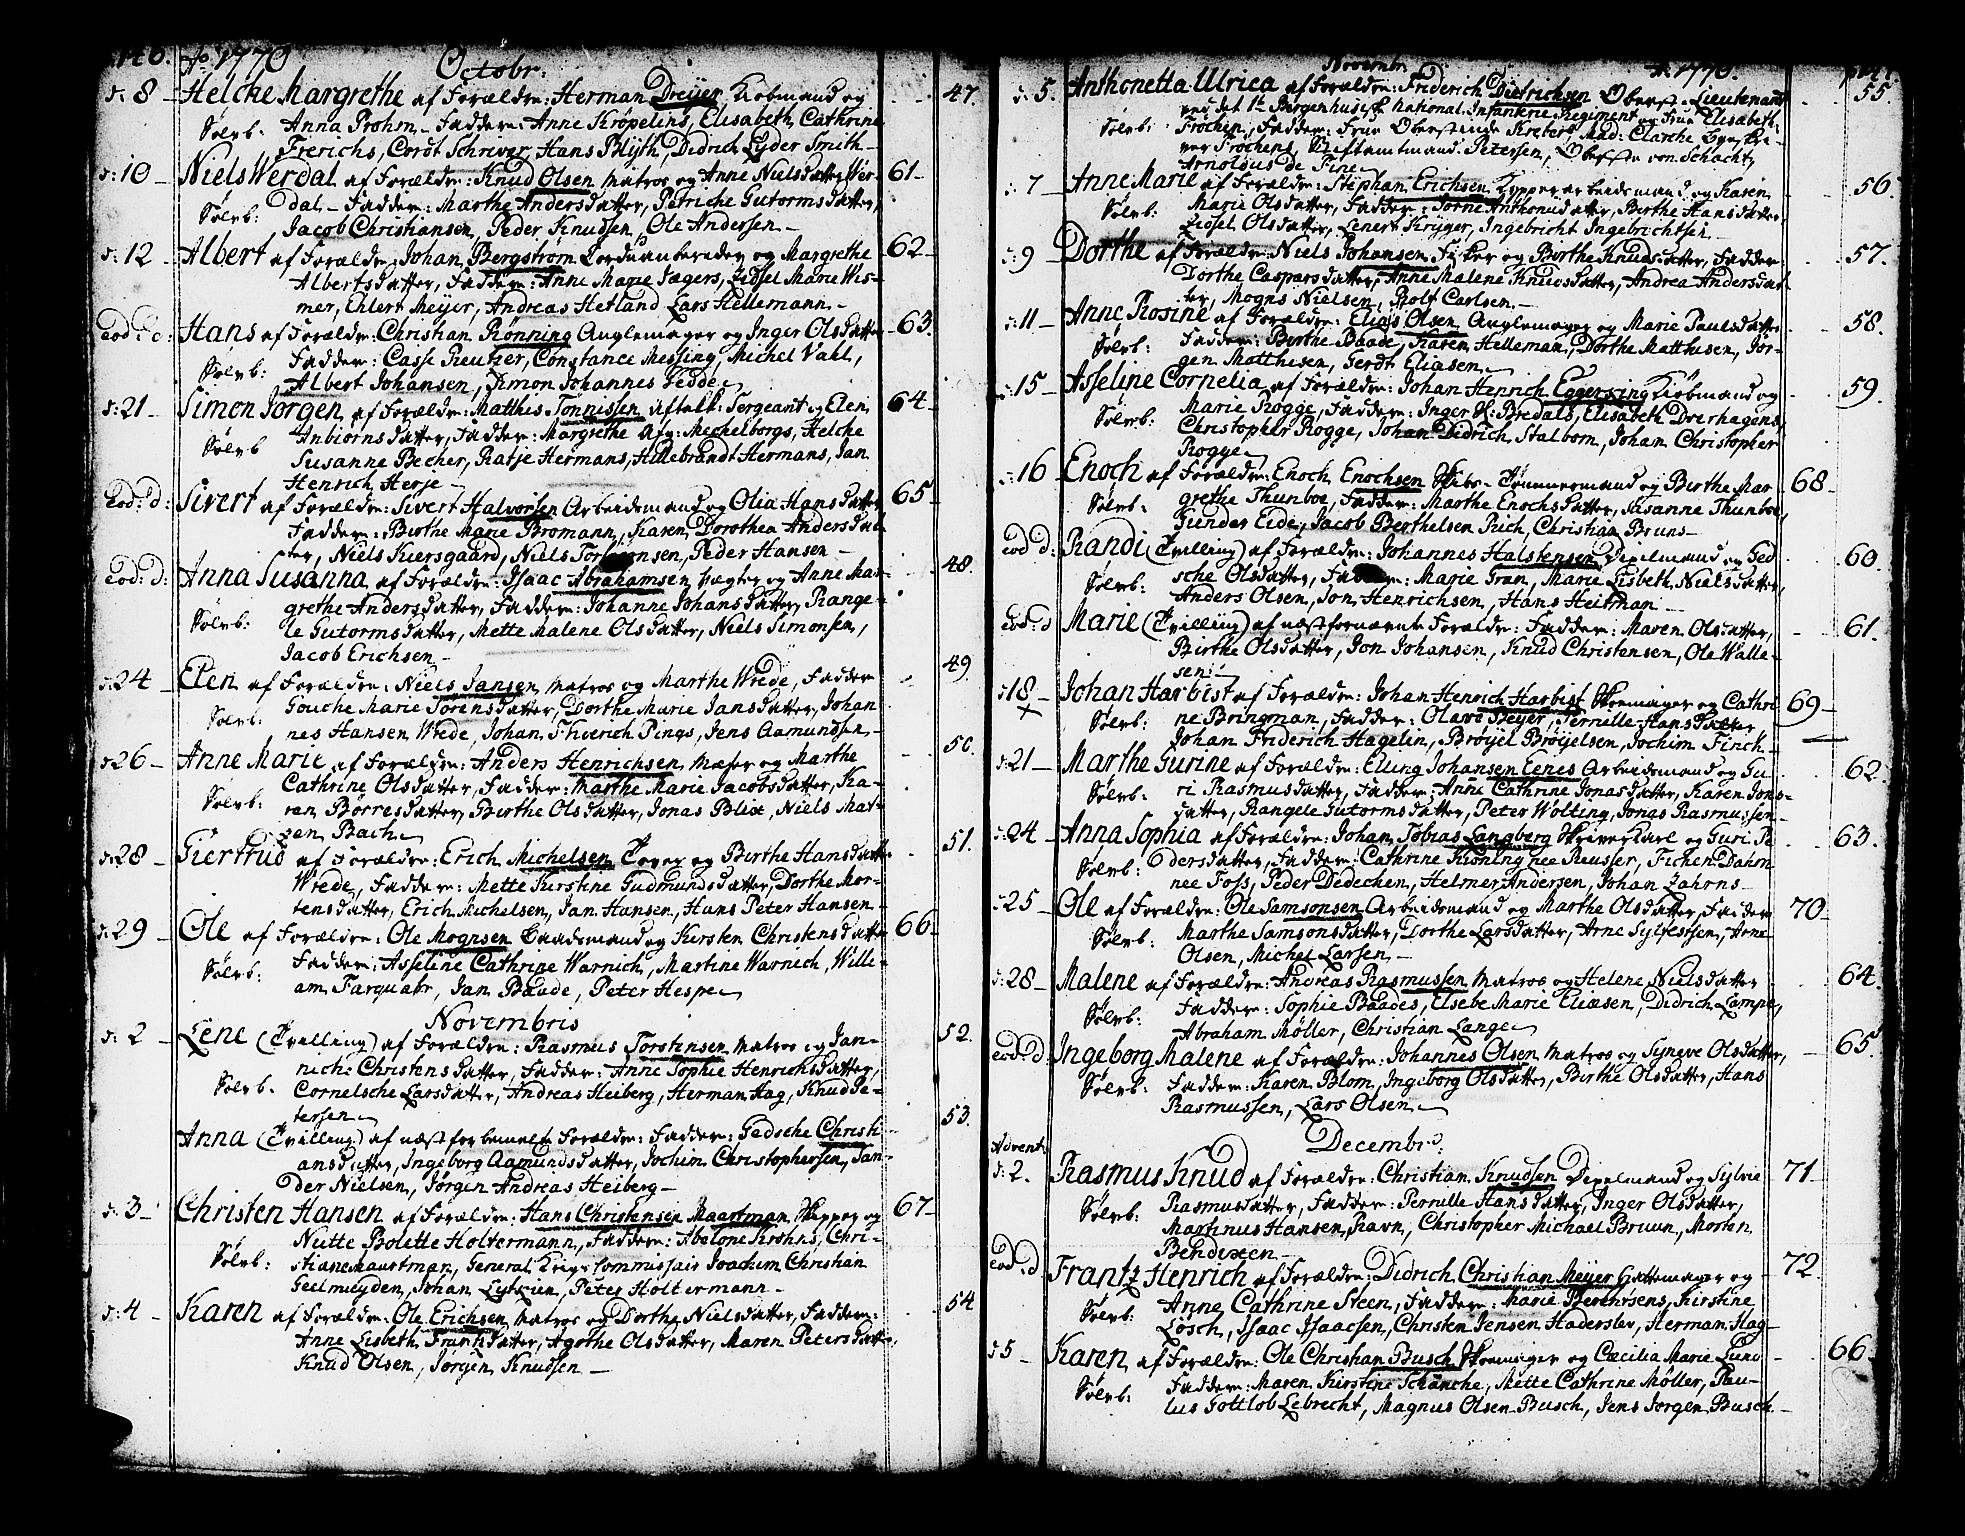 146. Ao 1770 Octobr:
d: 8 – Helche Margrethe af Forældre: Herman Dreÿer Kiøbmand og 47.
Sølvb: Anna Prohm – Faddere: Anne Kröpelins, Elisabeth Cathrine
Frerichs, Corôt Schriver, Hans Blÿth, Didrich Lÿder Smith –
d: 10 – Niels Werdal af Forældre: Knud Olsen Matros og Anne Nielsdatter Wer- 61 –
Sølvb: dal – Faddere: Marthe Andersdatter, Petriche Gutormsdatter,
Jacob Christiansen, Peder Knudsen, Ole Andersen –
d: 12 Albert af Forældre: Johan Bergstrøm og Margrethe 62 –
Albertsdatter, Faddere: Anne Marie Jægers, Zidsel Marie Wis-
mer, Ehlert Meÿer, Andreas Hetland Lars Hellemann –
Eod: d: Hans af Forældre: Christian Rønning Anglemager og Inger Olsdatter 63.
Sølvb: Faddere: Casse Creutzer, Constance Messing, Michel Vahl,
Albert Johansen, Simon Johannes Fedde
d: 21 – Simon Jørgen af Forældre: Matthis Tønnissen aftak: Sergeant og Elen 64 –
Sølvb Anbiørnsdatter, Faddere: Margrethe Michelborgs, Helche
Susanne Becher, Ratje Hermans, Hillebrandt Hermans, Jan
Henrich Herje –
Eod: d: Sivert af Forældre: Sivert Halvorsen Arbeidsmand og Olia Hansdatter 65 –
Faddere: Birthe Marie Bromann, Karen Dorothea Andersdat-
ter, Niels Kiersgaard, Niels Peder Hansen –
Eod: d: Anna Susanna af Forældre: Isaac Abrahamsen Vægter og Anne Mar- 48.
Sølvb: grethe Andersdatter, Faddere: Johanne Johansdatter, Range-
le Gutormsdatter, Mette Malene Olsdatter, Niels Simonsen,
Jacob Erichsen –
d: 24 Elen af Forældre: Niels Jansen Matros og Marthe Wrede, Faddere 49.
Sølvb: Gouche Marie Sørensdatter, Dorthe Marie Jansdatter, Johan
nes Hansen Wrede, Johan Pings, Jens Aamundsen –
d: 26 – Anne Marie af Forældre: Anders Henrichsen og Marthe 50.
Sølvb: Cathrine Olsdatter, Faddere: Marthe Marie Jacobsdatter, Ka-
ren Børresdatter, Birthe Olsdatter, Jonas Blix, Niels Mat-
zen Bach
d: 28 Giertrud af Forældre: Erich Michelsen og Birthe Hansdatter 51.
Wrede, Faddere: Mette Kirstine Gudmundsdatter, Dorthe Mor-
tensdatter, Erich Michelsen, Jan Hansen, Hans Peter Hansen –
d: 29 – Ole af Forældre: Ole Mognsen Baadsmand og Kirsten Christensdatter 66 –
Sølvb: Faddere: Asseline Cathrine Warnich, Mastine Warnich, Willi-
am Farquahr, Jan Baade, Peter Hespe
Novembris
d: 2 – Lene (Tvilling) af Forældre: Rasmus Torstensen Matros og Jan- 52.
Sølvb: niche Christensdatter, Faddere: Anne Sophie Henrichsdatter,
Cornelsche Larsdatter, Andreas Heiberg, Herman Hag, Knud Pe-
tersen
Anna (Tvilling) af næstforbemelte Forældre: Faddere: Gedsche Christi- 53.
ansdatter, Ingeborg Aamundsdatter, Jochim Christophersen, San-
der Nielsen, Jørgen Andreas Heiberg –
d: 3 – Christen Hansen af Forældre: Hans Christensen Maartman Skipper og 67 –
Sølvb: Nitte Bolette Holtermann, Faddere: Abelone Krohns, Chri-
stiane Maartman, General Krigs Commissair Joachim Christian
Geelmuyden, Johan Lÿtzien, Peter Holtermann –
d: 4 – Karen af Forældre: Ole Erichsen Matros og Dorthe Nielsdatter, Faddere: 54
Anne Lisbeth Frantzdatter, Agothe Olsdatter, Maren Petersdatter,
Knud Olsen, Jørgen Knudsen –
Novembr Ao 1770. 147.
d: 5. Anthonetta Ulrica af Forældre: Friderich Dietrichsen Oberst-Lieutenant 55.
Sølvb: ved det 1te Bergenhusiske National Infanterie Regiment og Frue Elisabeth
Fröchen, Faddere: Frue Oberstinde Mad: Clarche
ver Fröchens, Stiftamtmand Petersen, Oberste von Schacht,
Arnoldus de Fine
d: 7 Anne Marie af Forældre: Stephan Erichsen Arbeidsmand og Karen 56
Sølvb: Marie Olsdatter, Faddere: Anthonisdatter, Birthe Hansdatter
Zidsel Olsdatter, Lenert Krÿger, Ingebricht Ingebrichtsen
d: 9 Dorthe af Forældre: Niels Johansen Fisker og Birthe Knudsdatter, Faddere 57.
Dorthe Caspersdatter, Anne Malene Knudsdatter, Andrea Andersdat
ter, Mogns Nielsen, Rolf Carlsen –
d: 11 – Anne Rosine af Forældre: Elias Olsen Anglemager og Marie Paulsdatter 58.
Sølvb: Faddere: Birthe Baade, Karen Helleman, Dorthe Matthisen, Jør-
gen Matthisen, Gerdt Eliasen
d: 15 Asseline Cornelia af Forældre: Johan Henrich Eggerking Kiøbmand og 59.
Sølvb: Marie Rogge, Faddere: Inger H: Bredals, Elisabeth Dverhagens,
Christopher Rogge, Johan Didrich Stalborn, Johan Christopher
Rogge
d: 16 Enoch af Forældre: Enoch Enochsen Skibs-Tømmermand og Birthe Mar- 68 –
Sølvb: grethe Thunboe, Faddere: Marthe Enochsdatter, Susanne Thunboe,
Giender Eide, Jacob Berthelsen Rich, Christian Bruns –
eod d: Randi (Tvilling) af Forældre: Johannes Halstensen og Ged 60.
Sølvb: sche Olsdatter, Faddere: Marie Gran, Marie Lisbeth Nielsdatter,
Anders Olsen, Jon Henrichsen, Hans Heitman –
eod: d Marie (Tvilling) af næstfornævnte Forældre: Faddere: Maren Olsdatter, 61.
Birthe Olsdatter, Jon Johansen, Knud Christensen, Ole Walle-
sen:
d: 18 – Johan Harbist af Forældre: Johan Henrich Harbist Skomager og Cathri 69 –
Sølvb: ne Bringman, Faddere: Olave Beÿer, Pernille Hansdatter
Johan Friderich Hagelin, Brøÿel Brøÿelsen, Jochim Finch –
d: 21 – Marthe Gurine af Forældre: Elling Johansen Eenes Arbeidsmand og Gu 62.
Sølvb: ri Rasmusdatter, Faddere: Anne Cathrine Jonasdatter, Karen Jons-
datter, Rangele Gutormsdatter, Peter Wolting, Jonas Rasmussen –
d: 24 Anna Sophia af Forældre: Johan Tobias Langberg Skriverkarl og Guri Pe 63.
Sølvb: dersdatter, Faddere: Cathrine Kisning nee Reusser, Fichen Dahm
nee Foss, Peder Dedechen, Helmer Andersen, Johan Zahrns –
d: 25 – Ole af Forældre: Ole Samsonsen Arbeidsmand og Marthe Olsdatter, Faddere 70 –
Sølvb: Marthe Samsonsdatter, Dorthe Larsdatter, Arne Sylfestsen, Arne
Olsen, Michel Larsen –
d: 28 – Malene af Forældre: Andreas Rasmussen Matros og Helene Nielsdatter 64.
Sølvb: Faddere: Sophie Baades, Elsebe Marie Eliasen, Didrich Lampe,
Abraham Møller, Christian Lange
eod: d Ingeborg Malene af Forældre: Johannes Olsen Matros og Syneve Olsdatter, 65.
Sølvb: Faddere: Karen Blom, Ingeborg Olsdatter, Birthe Olsdatter, Hans
Rasmussen, Lars Olsen
Decembr:
Advent:
d: 2. Rasmus Knud af Forældre: Christian Knudsen og Sylvie 71 –
Sølvb: Rasmusdatter, Faddere: Pernille Hansdatter, Inger Olsdatter,
Martinus Hansen Ravn, Christopher Michael Bruun, Morten
Bendixen –
eod: d Frantz Henrich af Forældre: Didrich Christian Meÿer Hattemager og 72.
Sølvb: Anne Cathrine Steen, Faddere: Marie Berentsens, Kirstine
Lösch, Isaac Isaacsen, Christen Jensen Haderslev, Herman Hag –
d 5 – Karen af Forældre: Ole Christian Busch Skomager og Cæcilia Marie Lund 66.
Sølvb: Faddere: Maren Kirstine Schänche, Mette Cathrine Møller, Pau-
lus Gottlob Lebrecht, Magnus Olsen Busch, Jens Jørgen Busch –